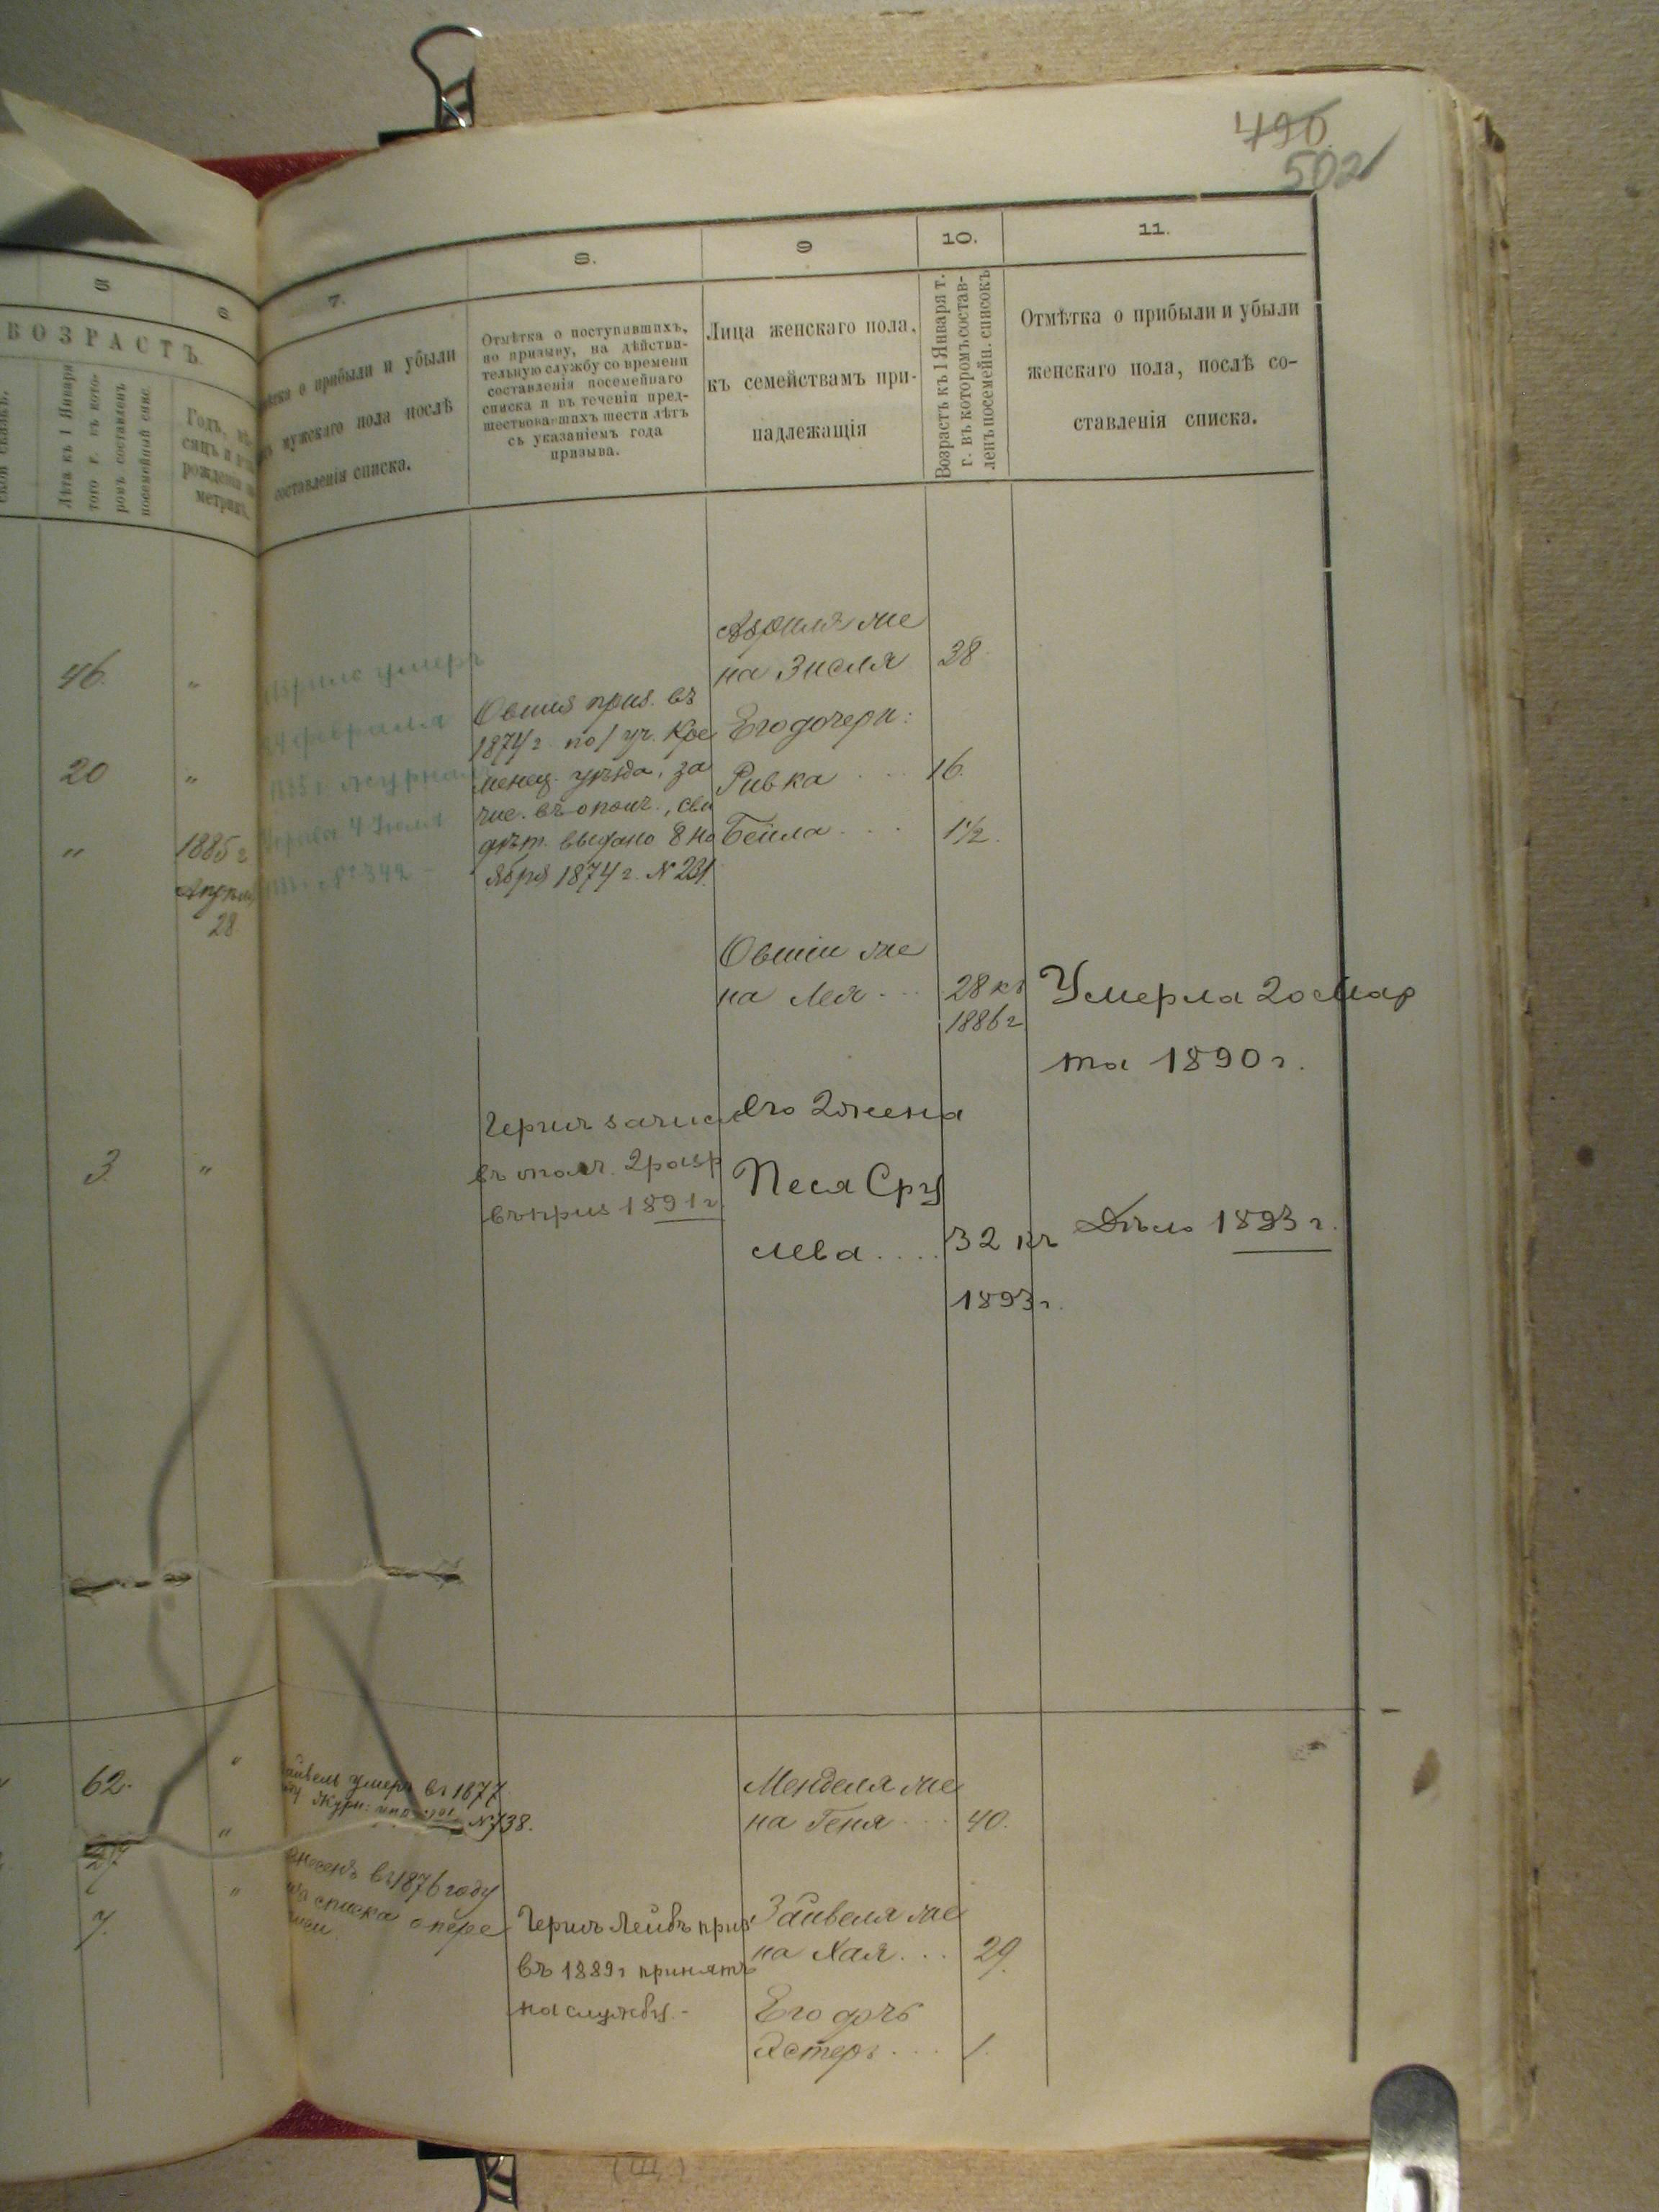 490
502
5
6
7.
8.
9
10.
11.
ВОЗРАСТЪ.
Лѣта къ 1 Января
того г. въ кото-
ромъ составленъ
посемейный спис
Годъ, мѣ-
сяцъ и
рожденія
метрик.
о прибыли и убыли
мужскаго пола послѣ
составленія списка.
Отмѣтка о поступившихъ,
по призыву, на дѣйстви-
тельную службу со времени
составленія посемейнаго
списка и въ теченіи пред-
шествовавшихъ шести лѣтъ
съ указаніемъ года
призыва.
Лица женскаго пола,
къ семействамъ при-
надлежащія
Возрастъ къ 1 Января т.
г. въ которомъ состав-
ленъ посемейн. списокъ
Отмѣтка о прибыли и убыли
женскаго пола, послѣ со-
ставленія списка.
46.
"
20
"
"
1885 г
Апрѣля
28
умеръ
февраля
4 Іюля
№ 342
Овшія приз. въ
1874 г. по 1 уч. Кре
менец. уѣзда, за
чис. въ ополч., сви
дѣт. выдано 8 но
ября 1874 г. № 231.
же
на Зисля
38
Его дочери:
Ривка
16.
Бейла
1 1/2.
Овшіи же
на Лея
28 къ
1886 г
Умерла 20 мар
та 1890 г.
3
"
Герш зачис
въ ополч. 2 разр
въ приз 1891 г
Его 2 жена
Песя Сру
лева
32 къ
1893 г.
Дѣло 1893 г.
62.
"
умеръ въ 1877
Журн:
№ 738.
27
"
7.
"
въ 1876 году
списка
Гершъ Лейбъ приз
въ 1889 г принятъ
на службу. -
Менделя же
на Геня
40.
Зайвеля же
на Хая
29.
Его дочь
Эстеръ
1.